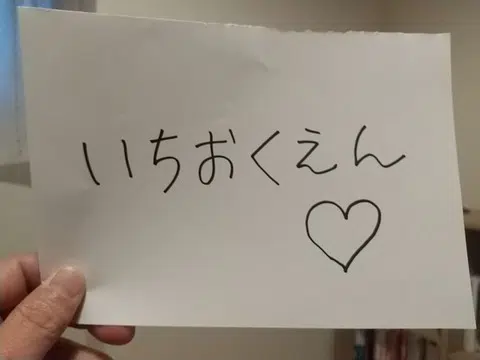 いちおくえん